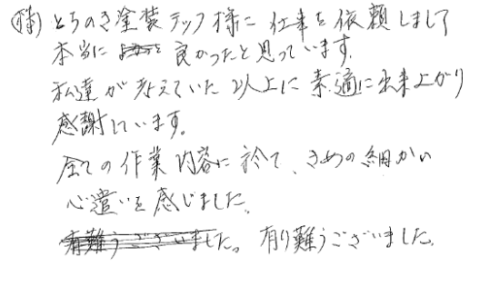 (株)とちのき塗装テック様に仕事を依頼しまして
本当に良かったと思っています。
私達が考えていた以上に素適に出来上がり
感謝しています。
全ての作業内容に於て、きめの細かい
心遣いを感じました。
有難うございました。有り難うございました。